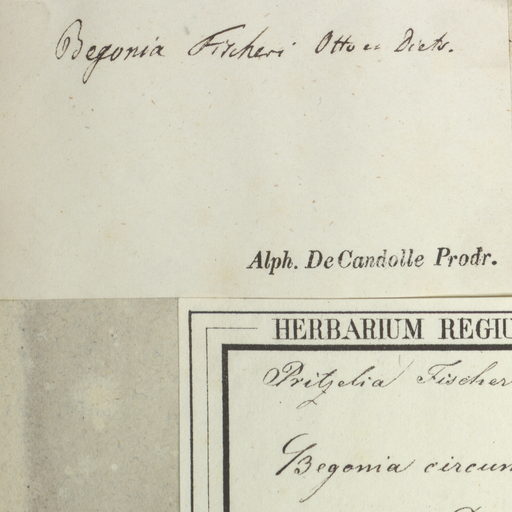 Begonia Fischeri Otto et Dietr.
Alph. DeCandolle Prodr.
HERBARIUM REGIU
Pritzelia Fischer
Begonia circum